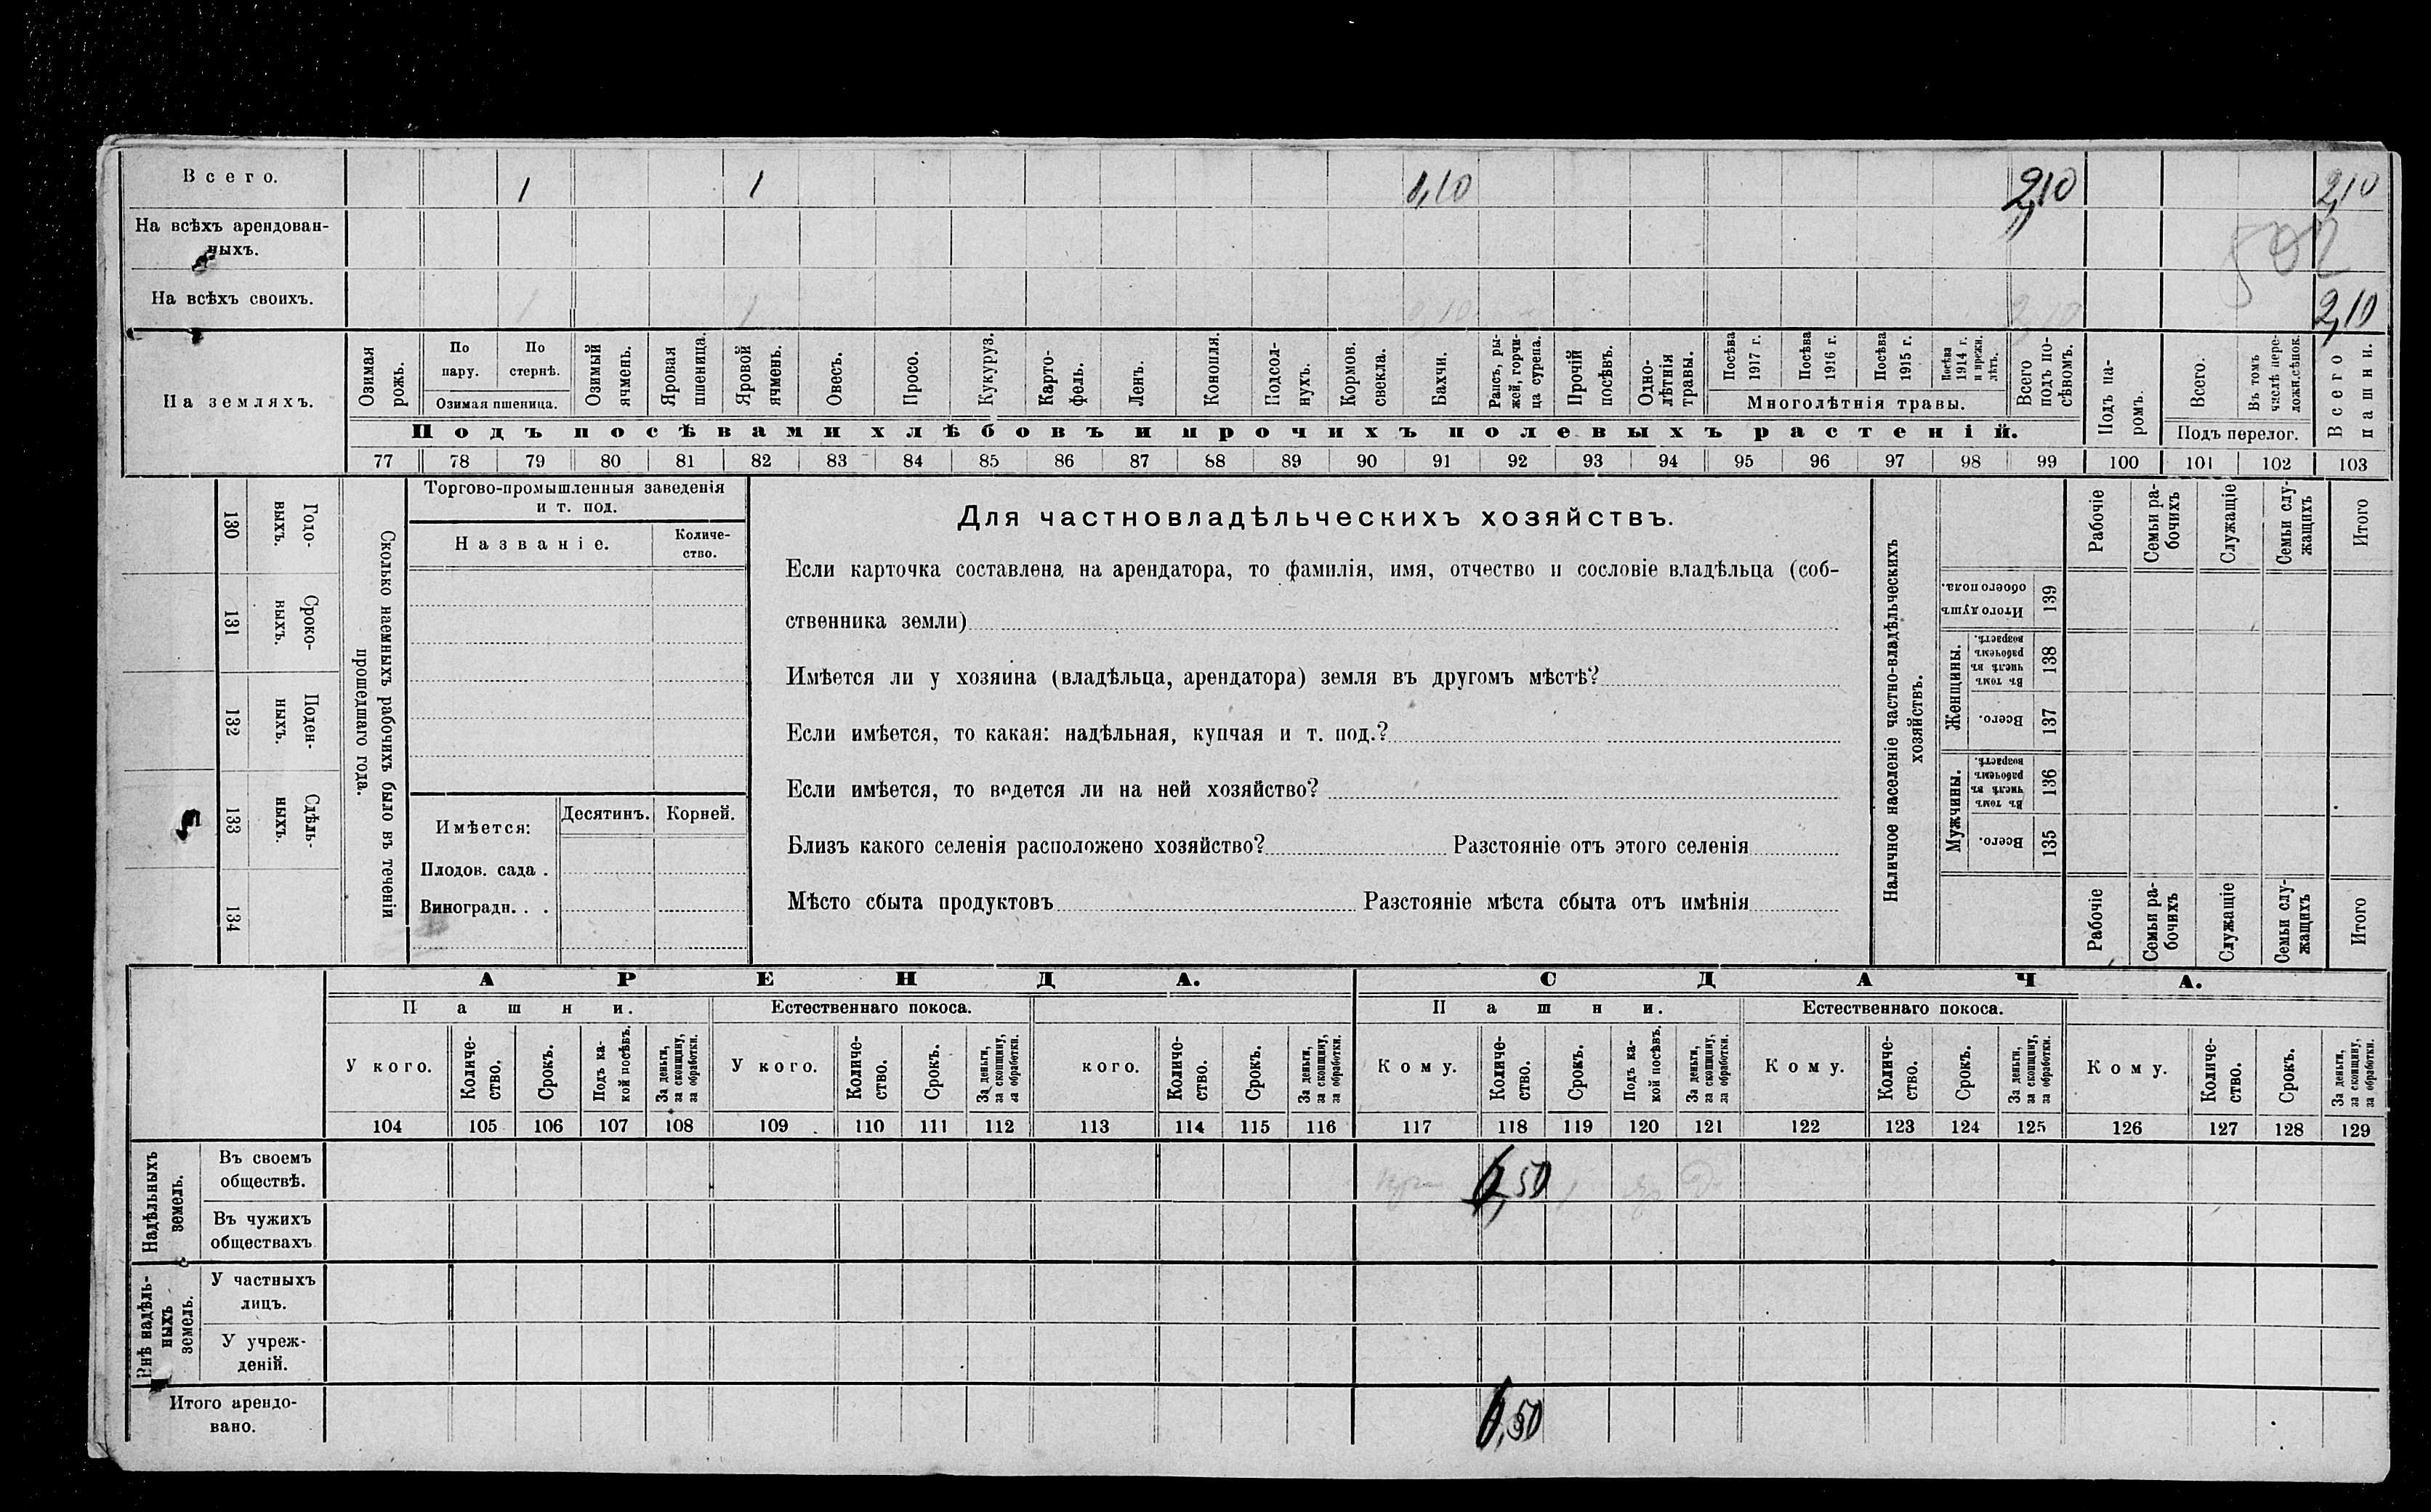 Всего. 1 1 0,10 2,10 2,10
На всѣхъ арендован-
ныхъ.
502
На всѣхъ своихъ. 1 1 0,10 2,10 2,10
На земляхъ.
Озимая рожь.
По пару.
По стернѣ.
Озимая пшеница.
Озимый ячмень.
Яровая пшеница.
Яровой ячмень.
Овесъ.
Просо.
Кукуруз.
Карто-
фель.
Ленъ.
Конопля.
Подсол-
нухъ.
Кормов. свекла.
Бахчи.
Рапсъ, ры-
жей, горчи-
ца сурепа.
Прочій посѣвъ.
Одно-
лѣтнія травы.
Посѣва 1917 г.
Посѣва 1916 г.
Посѣва 1915 г.
Посѣва 1914 г. и прежн. лѣтъ.
Многолѣтнія травы.
Всего подъ по-
сѣвомъ.
Подъ посѣвами хлѣбовъ и прочихъ полевыхъ растеній.
Подъ па-
ромъ.
Всего.
Въ томъ числѣ пере-
ложн. сѣнок.
Подъ перелог.
Всего пашни.
77 78 79 80 81 82 83 84 85 86 87 88 89 90 91 92 93 94 95 96 97 98 99 100 101 102 103
130 Годо-
выхъ.
131 Сроко-
выхъ.
132 Поден-
ныхъ.
133 Сдѣль-
ныхъ.
134
Сколько наемныхъ рабочихъ было въ теченіи
прошедшаго года.
Торгово-промышленныя заведенія
и т. под.
Названіе.
Количе-
ство.
Имѣется:
Десятинъ. Корней.
Плодов. сада .
Виноградн. . .
Для частновладѣльческихъ хозяйствъ.
Если карточка составлена на арендатора, то фамилія, имя, отчество и сословіе владѣльца (соб-
ственника земли)
Имѣется ли у хозяина (владѣльца, арендатора) земля въ другомъ мѣстѣ?
Если имѣется, то какая: надѣльная, купчая и т. под.?
Если имѣется, то ведется ли на ней хозяйство?
Близъ какого селенія расположено хозяйство? Разстояніе отъ этого селенія
Мѣсто сбыта продуктовъ Разстояніе мѣста сбыта отъ имѣнія
Наличное населеніе частно-владѣльческихъ
хозяйствъ.
Рабочіе
Семьи ра-
бочихъ
Служащіе
Семьи слу-
жащихъ
Итого
Итого душъ обоего пола. 139
Женщины.
Въ томъ числѣ въ рабочемъ возрастѣ. 138
Всего. 137
Мужчины.
Въ томъ числѣ въ рабочемъ возрастѣ. 136
Всего. 135
Рабочіе
Семьи ра-
бочихъ
Служащіе
Семьи слу-
жащихъ
Итого
АРЕНДА. СДАЧА.
Пашни. Естественнаго покоса. Пашни. Естественнаго покоса.
У кого.
Количе-
ство.
Срокъ.
Подъ ка-
кой посѣвъ.
За деньги, за скопщину, за обработки.
У кого.
Количе-
ство.
Срокъ.
За деньги, за скопщину, за обработки.
кого.
Количе-
ство.
Срокъ.
За деньги, за скопщину, за обработки.
Кому.
Количе-
ство.
Срокъ.
Подъ ка-
кой посѣвъ.
За деньги, за скопщину, за обработки.
Кому.
Количе-
ство.
Срокъ.
За деньги, за скопщину, за обработки.
Кому.
Количе-
ство.
Срокъ.
За деньги, за скопщину, за обработки.
104 105 106 107 108 109 110 111 112 113 114 115 116 117 118 119 120 121 122 123 124 125 126 127 128 129
Надѣльныхъ
земель.
Въ своемъ
обществѣ.
6,50 1
Въ чужихъ
обществахъ
Внѣ надѣль-
ныхъ
земель.
У частныхъ
лицъ.
У учреж-
деній.
Итого арендо-
вано.
6,50